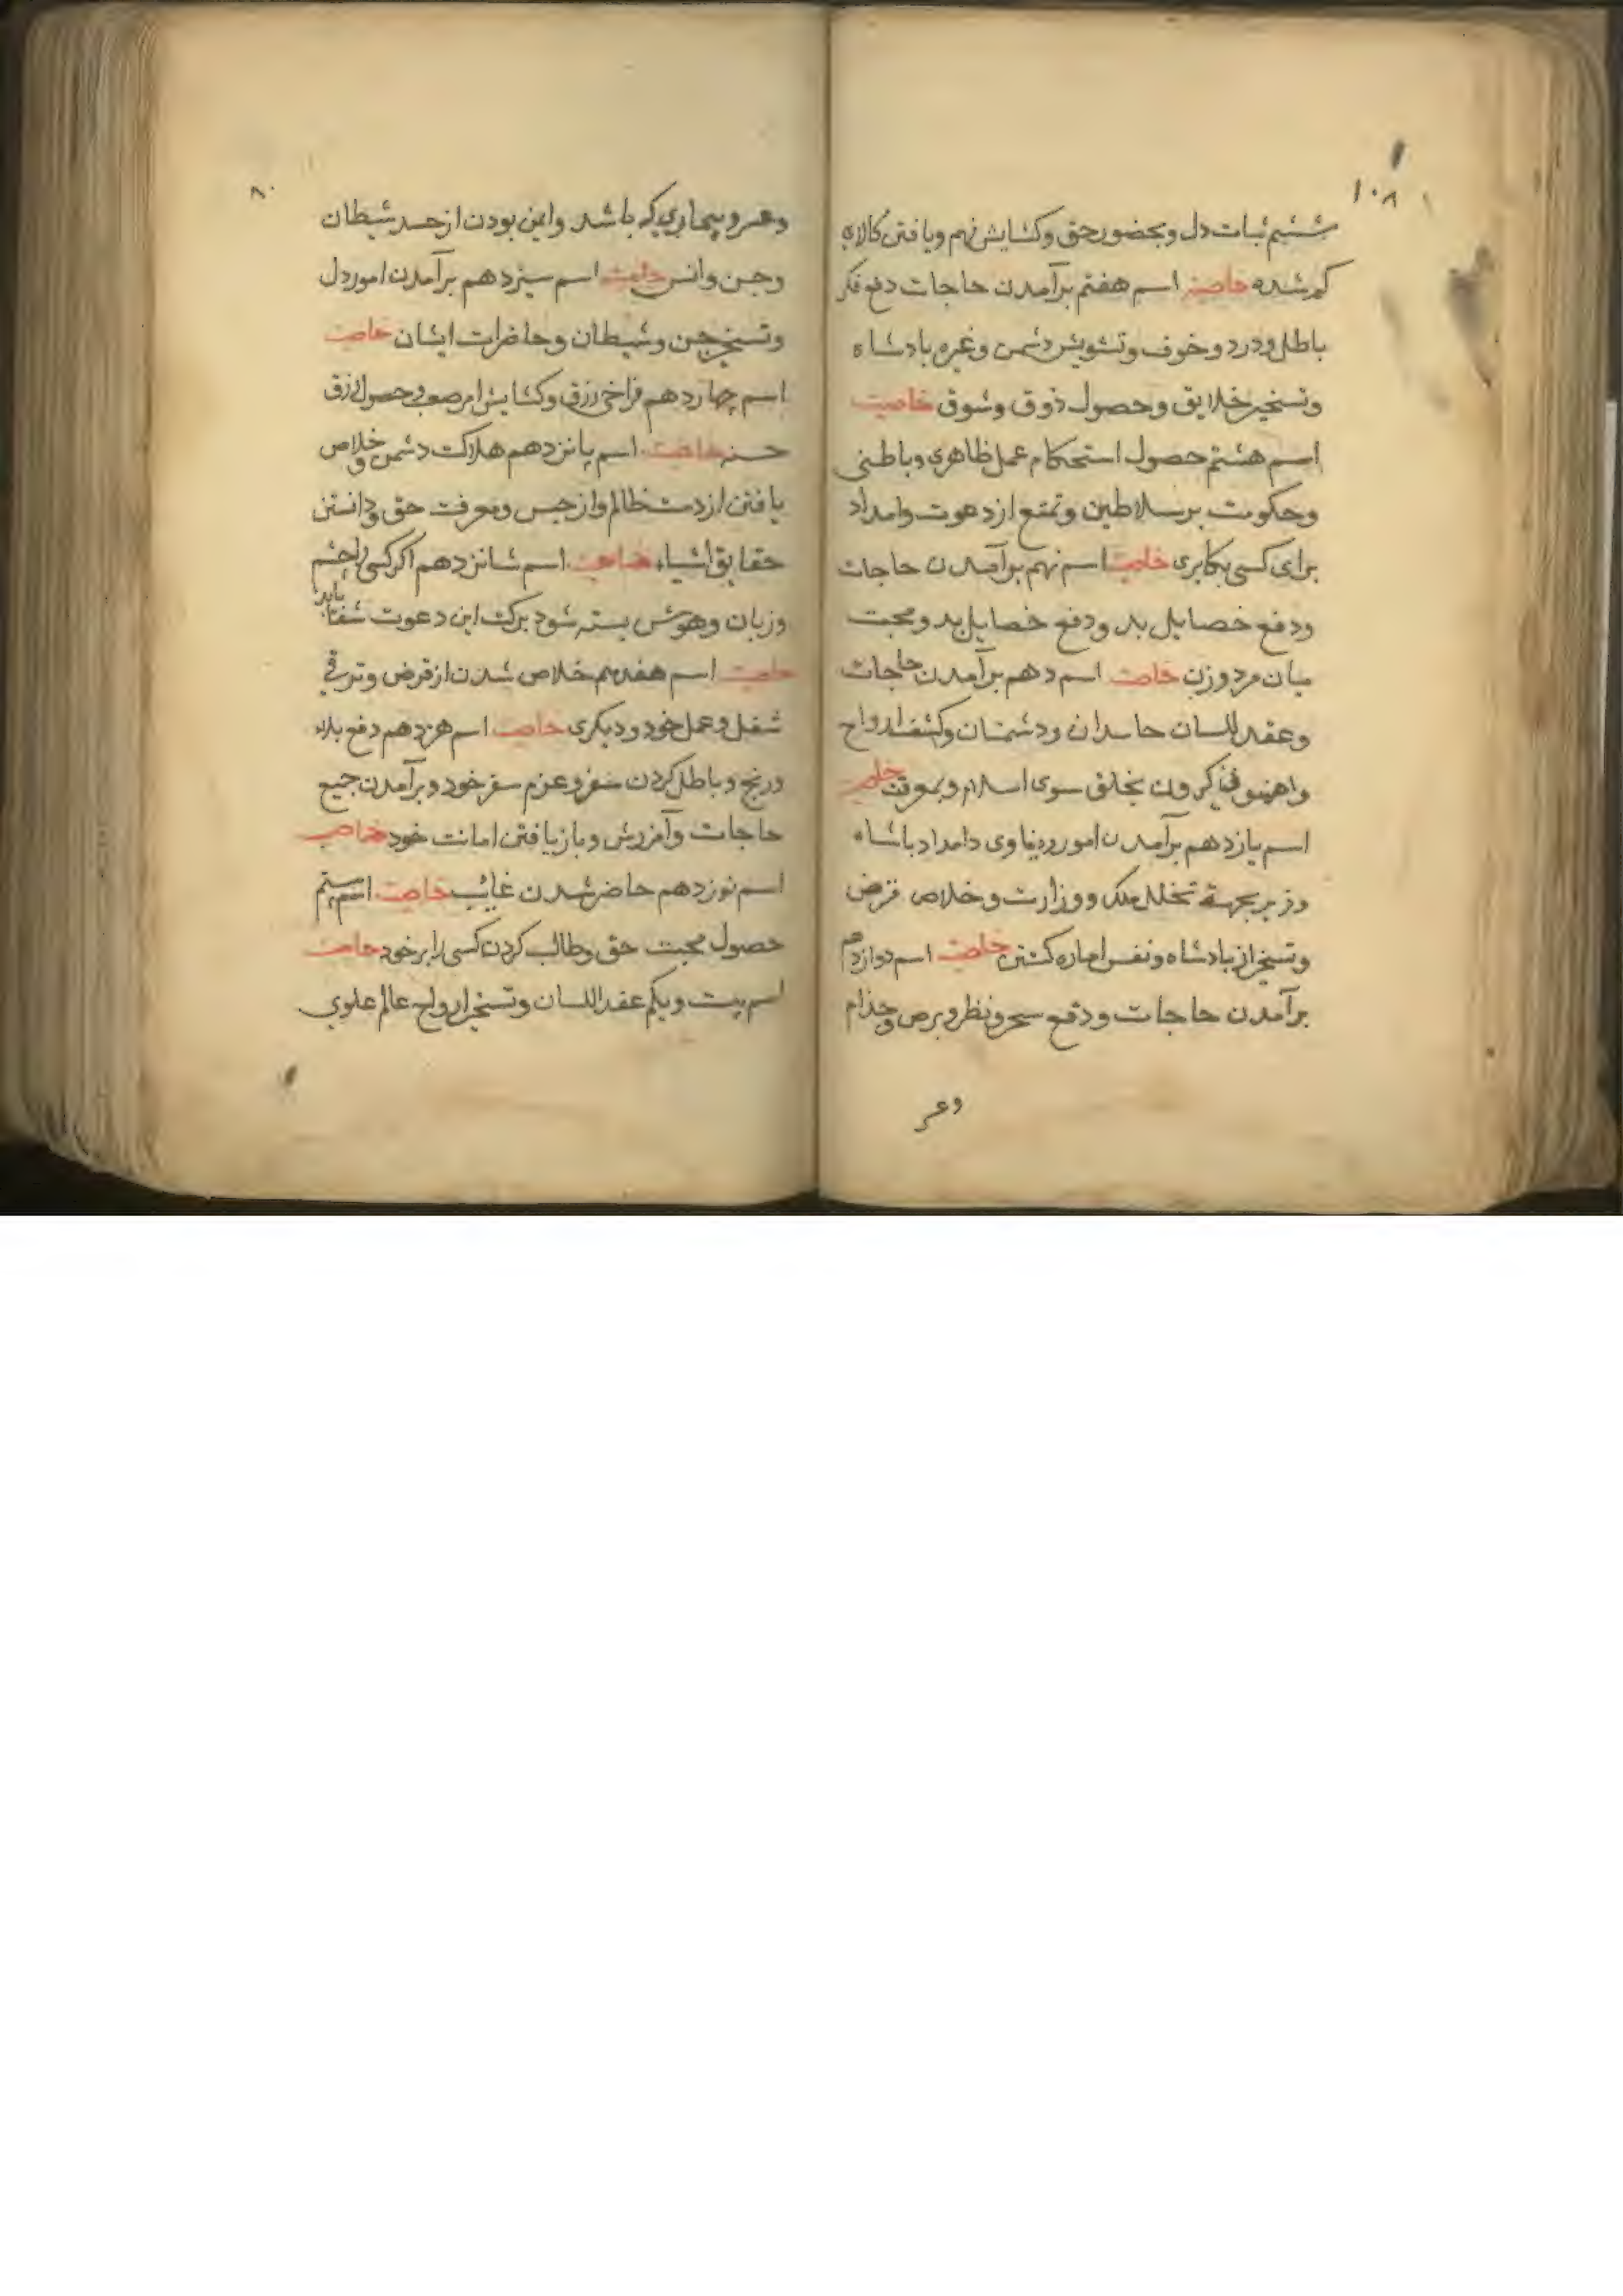 ۱۰۸
ششم ثبات دل و بحضور حق و کشایش فهم و یافتن کالای
کم شده خاصیت اسم هفتم برآمدن حاجات دفع فکر
باطل و درد و خوف و تشویش دشمن و غیره بادشاه
و تسخیر خلایق و حصول ذوق و شوق خاصیت
اسم هشتم حصول استحکام عمل ظاهری و باطنی
و حکومت بر سلاطین و تمتع از دعوت و امداد
برای کسی بکابری خاصیت اسم نهم برآمدن حاجات
ودفع خصایل بد ودفع خصایل بد و محبت
میان مرد و زن خاصیت اسم دهم برآمدن حاجات
و عقد اللسان حاسدان و دشمنان و کشف ارواح
بخلق سوی اسلام و بمعرفت خاصیت
اسم یازدهم برآمدن امور دنیاوی دامداد باشاه
وزیر بجهة تخلل ملک و وزارت و خلاص قرض
و تسخیر از بادشاه و نفس اماره کشتن خاصیت اسم دوازدهم
برآمدن حاجات و دفع سحر و نظر و برص و جذام
وعر
۸۰
وعر و بیماری که باشد وایمن بودن از حسد شیطان
وجن وانس خاصیت اسم سیزدهم برآمدن امور دل
وتسخیر جن وشیطان وحاضرات ایشان خاصیت
اسم چهاردهم فراخی رزق وکشایش امر صعب و حصول رزق
حسنه خاصیت اسم پانزدهم هلاکت دشمن و خلاص
یافتن از دست ظالم واز حبس ومعرفت حق و دانستن
حقایق اشیاء خاصیت اسم شانزدهم اکر کسی را چشم
وزبان وهوش بسته شود برکت این دعوت شفا یابد
خاصیت اسم هفدهم خلاص شدن از قرض وترقی
شغل وعمل خود ودیکری خاصیت اسم هژدهم دفع بلاء
ورنج وباطل کردن سفر وعزم سفر خود وبرآمدن جمیع
حاجات وآمزرش وباز یافتن امانت خود خاصیت
اسم نوزدهم حاضر شدن غائب خاصیت اسم بیستم
حصول محبت حق وطالب کردن کسی را بر خود خاصیت
اسم بیست ویکم عقد اللسان وتسخیر ارواح عالم علوی